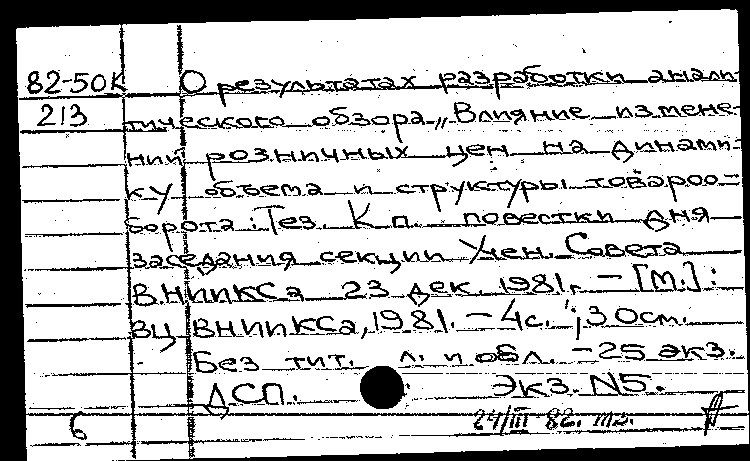 82-50К О результатах разработки анали-
213 тического обзора „Влияние измене-
ний розничных цен на динами-
ку объема и структуры товароо-
борота: Тез. К п. повестки дня
заседания секции Учен. Совета
ВНИИКСа 23 дек. 1981г. – [М.]:
ВЦ ВНИИКСа, 1981. – 4с.; 30см.
Без тит. л. и обл. – 25 экз.
ДСП. Экз. N5.
6 24/III-82.